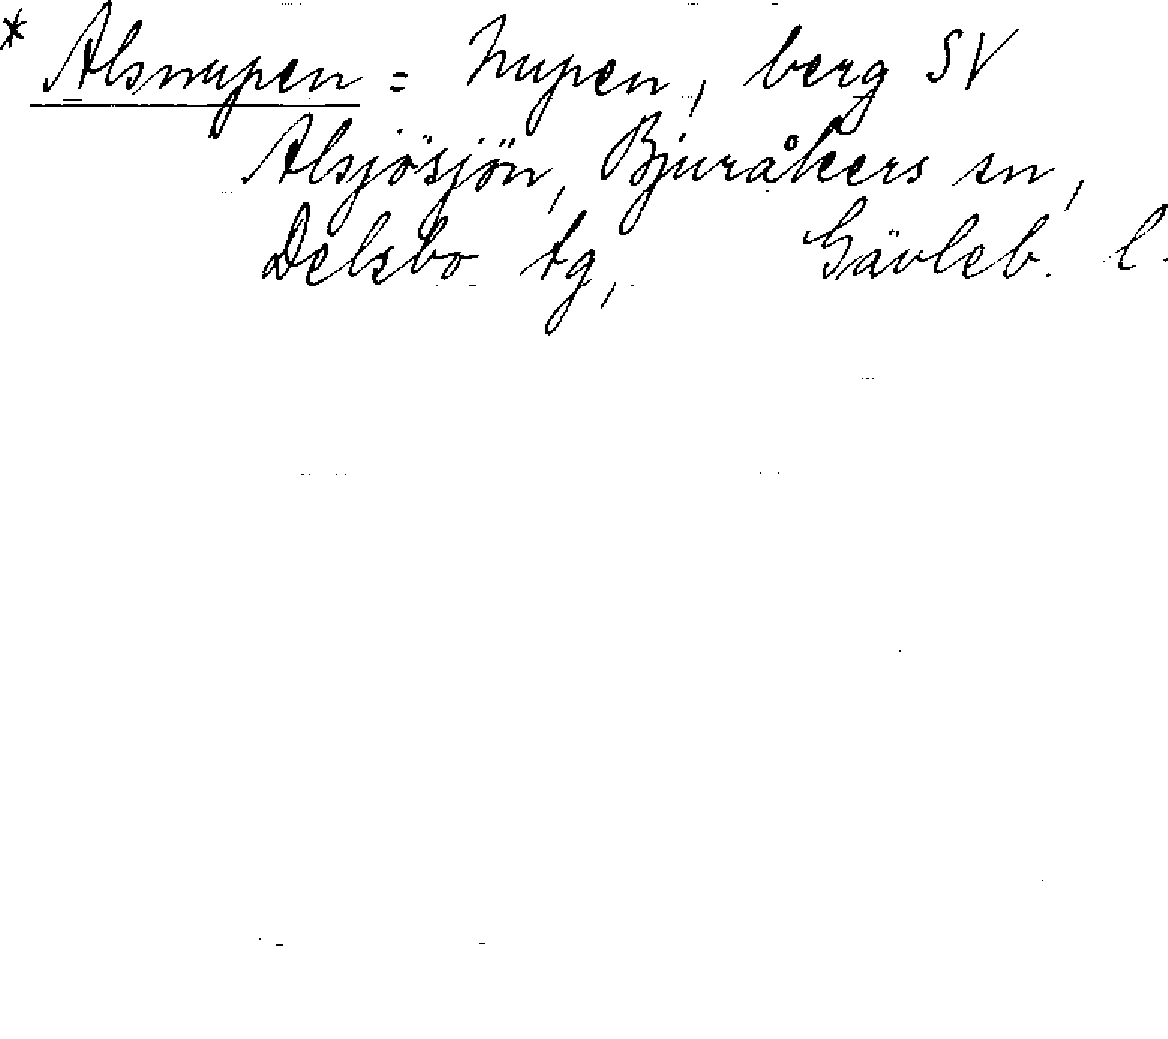 * Alsnupen = Nupen, berg SV
Alsjösjön, Bjuråkers sn,
Delsbo tg, Gävleb. l.